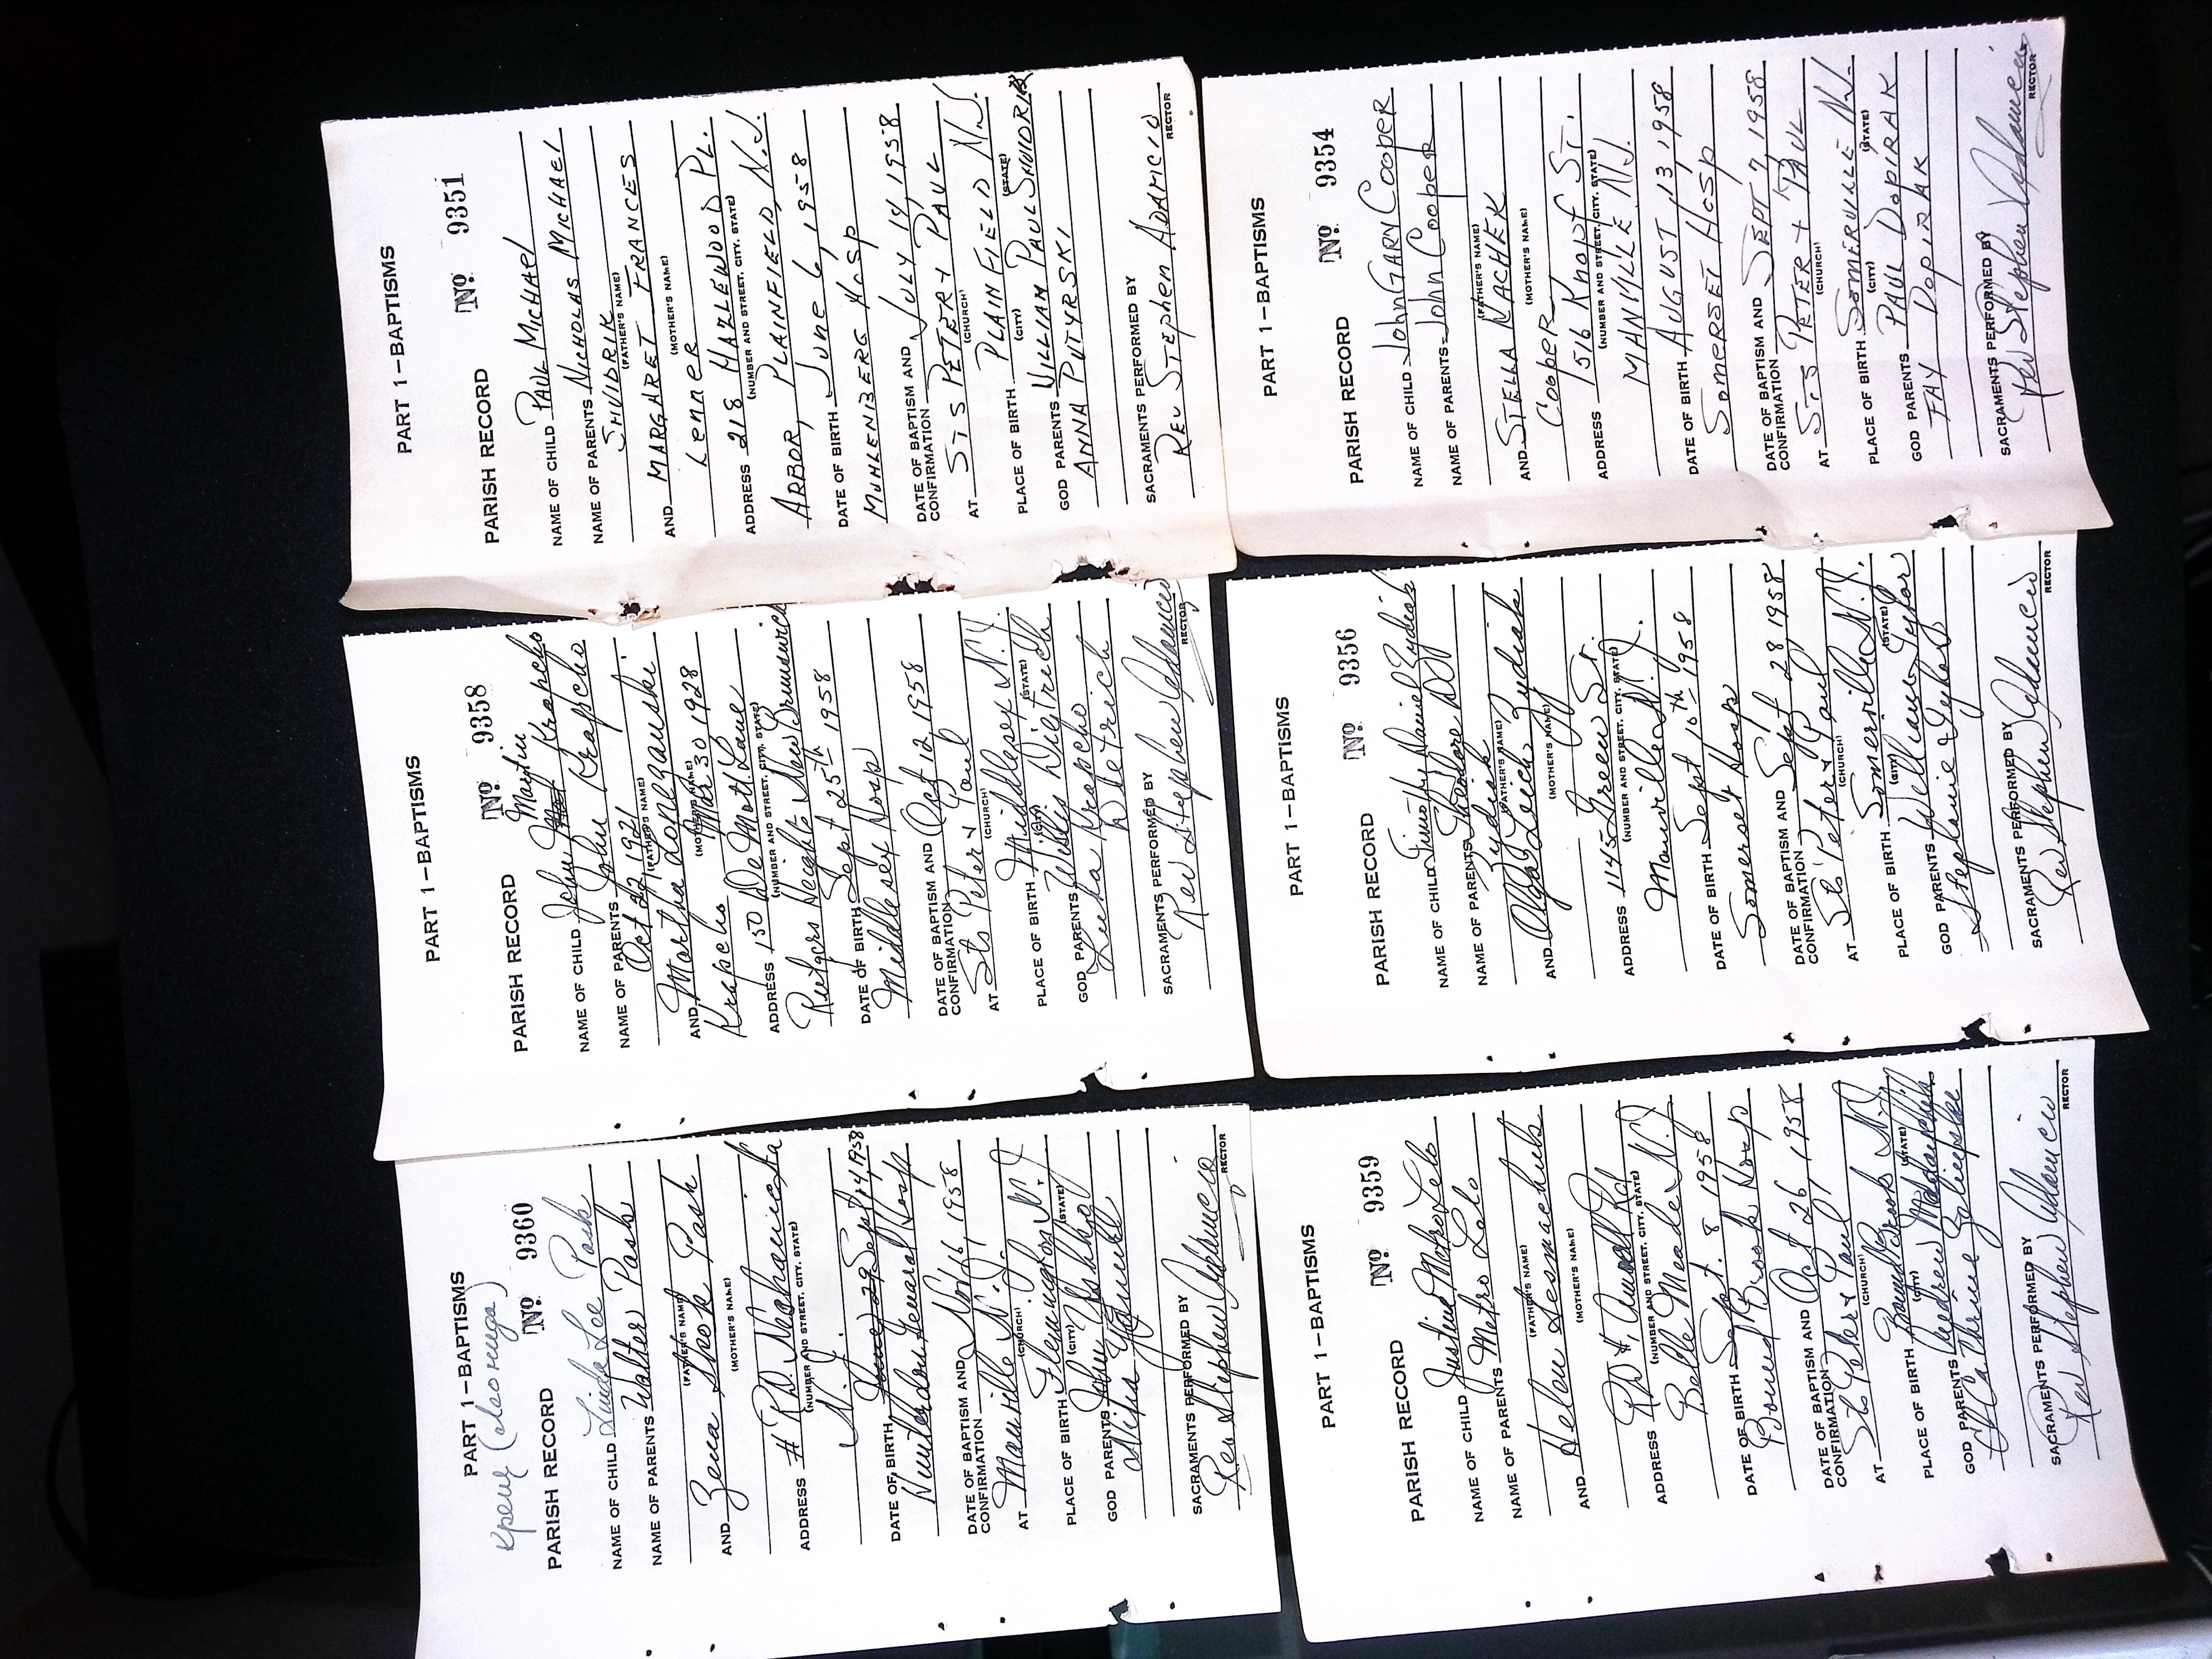 PART 1—BAPTISMS
крещ (Леонида)
PARISH RECORD No 9360
NAME OF CHILD Linda Lee Pask
NAME OF PARENTS Walter Pask
(FATHER'S NAME)
AND Zena Skok Pask
(MOTHER'S NAME)
ADDRESS # RD.
(NUMBER AND STREET, CITY, STATE)
N.J.
DATE OF BIRTH June 29 Sept 14, 1958
Hunterdon General Hosp
DATE OF BAPTISM AND
CONFIRMATION Nov 16, 1958
AT Manville N.J.
(CHURCH)
PLACE OF BIRTH Flemington N.J
(CITY) (STATE)
GOD PARENTS John Ushko
Nina
SACRAMENTS PERFORMED BY
Rev Stephen Adamcio
RECTOR
PART 1—BAPTISMS
PARISH RECORD No 9358
Martin
NAME OF CHILD John Krapcho
NAME OF PARENTS John Krapcho
Oct 22, 1921
(FATHER'S NAME)
AND Martha Lopezanski
(MOTHER'S NAME)
Krapcho Mar 30, 1928
ADDRESS 150 De Mott Lane
(NUMBER AND STREET, CITY, STATE)
Rutgers Heights New Brunswick
DATE OF BIRTH Sept 25th 1958
Middlesex Hosp
DATE OF BAPTISM AND
CONFIRMATION Oct 12, 1958
AT Sts Peter + Paul
(CHURCH)
PLACE OF BIRTH Middlesex N.J.
(CITY) (STATE)
GOD PARENTS Willis Dietrich
Luba Krapcho
Dietrich
SACRAMENTS PERFORMED BY
Rev Stephen Adamcio
RECTOR
PART 1—BAPTISMS
PARISH RECORD No 9351
NAME OF CHILD PAUL MICHAEL
NAME OF PARENTS NICHOLAS MICHAEL
SHUIDRIK
(FATHER'S NAME)
AND MARGARET FRANCES
(MOTHER'S NAME)
Lenner
ADDRESS 218 HAZLEWOOD PL.
(NUMBER AND STREET, CITY, STATE)
ARBOR, PLAINFIELD, N.J.
DATE OF BIRTH June 6, 1958
MUHLENBERG HOSP
DATE OF BAPTISM AND
CONFIRMATION JULY 14, 1958
AT STS PETER + PAUL
(CHURCH)
PLACE OF BIRTH PLAINFIELD N.J.
(CITY) (STATE)
GOD PARENTS WILLIAM PAUL SHUIDRIK
ANNA PUTYRSKI
SACRAMENTS PERFORMED BY
REV STEPHEN ADAMCIO
RECTOR
PART 1—BAPTISMS
PARISH RECORD No 9359
NAME OF CHILD Justine Metro Lelo
NAME OF PARENTS Metro Lelo
(FATHER'S NAME)
AND Helen
(MOTHER'S NAME)
ADDRESS RD #1 Amwell Rd
(NUMBER AND STREET, CITY, STATE)
Belle Meade N.J
DATE OF BIRTH Sept. 8, 1958
Bound Brook Hosp
DATE OF BAPTISM AND
CONFIRMATION Oct 26, 1958
AT Sts Peter + Paul
(CHURCH)
PLACE OF BIRTH Bound Brook N.J.
(CITY) (STATE)
GOD PARENTS Andrew
Cathrine
SACRAMENTS PERFORMED BY
Rev Stephen Adamcio
RECTOR
PART 1—BAPTISMS
PARISH RECORD No 9356
NAME OF CHILD Timothy Daniel Zydiak
NAME OF PARENTS Theodore
Zydiak
(FATHER'S NAME)
AND Olga Leich Zydiak
(MOTHER'S NAME)
ADDRESS 1145 Green St.
(NUMBER AND STREET, CITY, STATE)
Manville N.J.
DATE OF BIRTH Sept 10th 1958
Somerset Hosp
DATE OF BAPTISM AND
CONFIRMATION Sept 28, 1958
AT Sts Peter + Paul
(CHURCH)
PLACE OF BIRTH Somerville N.J.
(CITY) (STATE)
GOD PARENTS William Tylor
Stephanie Tylor
SACRAMENTS PERFORMED BY
Rev Stephen Adamcio
RECTOR
PART 1—BAPTISMS
PARISH RECORD No 9354
NAME OF CHILD John GARY Cooper
NAME OF PARENTS John Cooper
(FATHER'S NAME)
AND STELLA NACHEK
(MOTHER'S NAME)
Cooper
ADDRESS 1516 Knopf ST.
(NUMBER AND STREET, CITY, STATE)
MANVILLE N.J.
DATE OF BIRTH AUGUST 13, 1958
SOMERSET HOSP
DATE OF BAPTISM AND
CONFIRMATION SEPT 7, 1958
AT STS PETER + PAUL
(CHURCH)
PLACE OF BIRTH SOMERVILLE N.J.
(CITY) (STATE)
GOD PARENTS PAUL DOPIRAK
FAY DOPIRAK
SACRAMENTS PERFORMED BY
Rev Stephen Adamcio
RECTOR